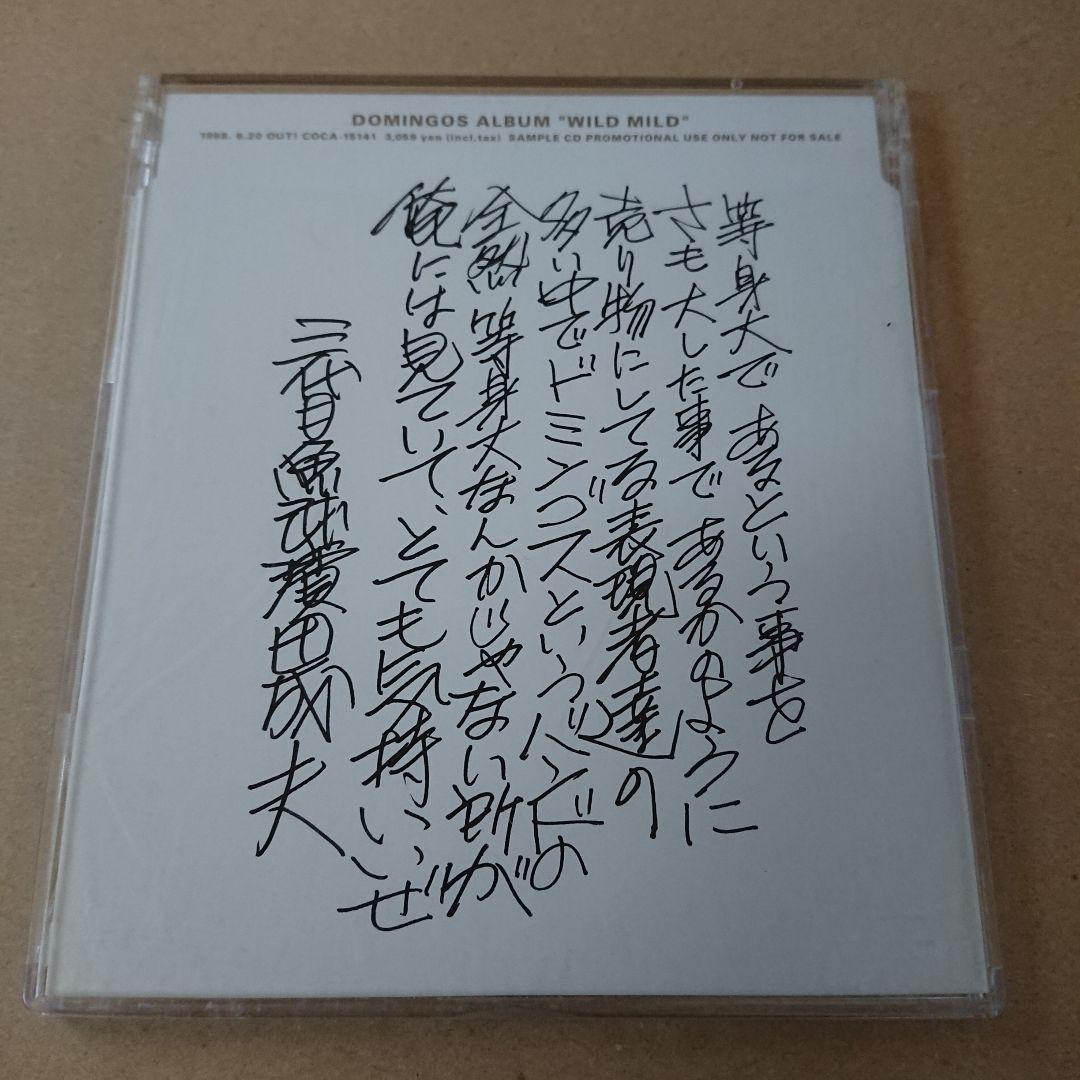 DOMINGOS ALBUM "WILD MILD"
1998. 6.20 OUT! COCA-15141 3,059 yen (incl.tax) SAMPLE CD PROMOTIONAL USE ONLY NOT FOR SALE
等身大であるという事を
さも大した事であるかのように
売り物にしてる表現者達の
多い中でドミンゴスというバンドの
全然等身丈なんかじゃない所が
俺には見ていて、とても気持いいぜ
三代目魚武濱田成夫